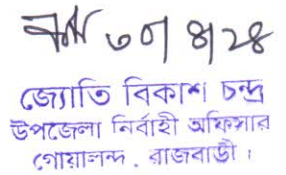 ৩০|৪|২৪
জ্যোতি বিকাশ চন্দ্র
উপজেলা নির্বাহী অফিসার
গোয়ালন্দ, রাজবাড়ী।